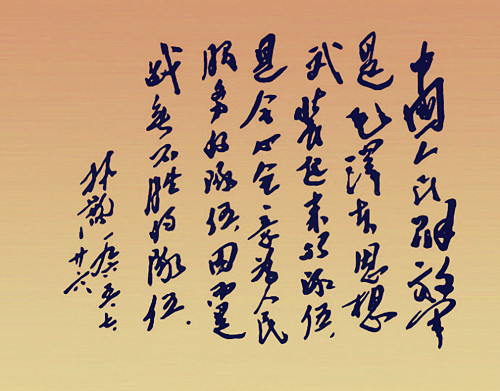 中國人民解放軍
是毛澤东思想
武裝起来的隊伍、
是全心全意为人民
服务的隊伍、因而是
战無不胜的隊伍、
林彪 一九六五、七、
廿六